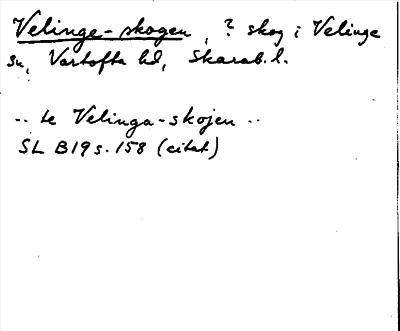 Velinge-skogen, ? skog i Velinge
sn, Vartofta hd, Skarab. l.
.. te Velinga-skojen ..
SL B19 s. 158 (citat)